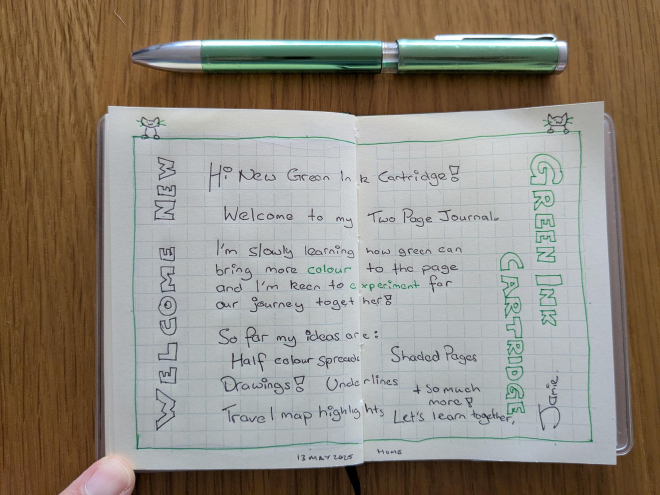 WELCOME NEW
Hi New Green Ink Cartridge!
Welcome to my Two Page Journal.
I'm slowly learning how green can
bring more colour to the page
and I'm keen to experiment for
our journey together!
So far my ideas are:
Half colour spreads Shaded Pages
Drawings! Underlines + so much
more!
Travel map highlights Let's learn together,
Jamie.
GREEN INK
CARTRIDGE
13 MAY 2025 HOME